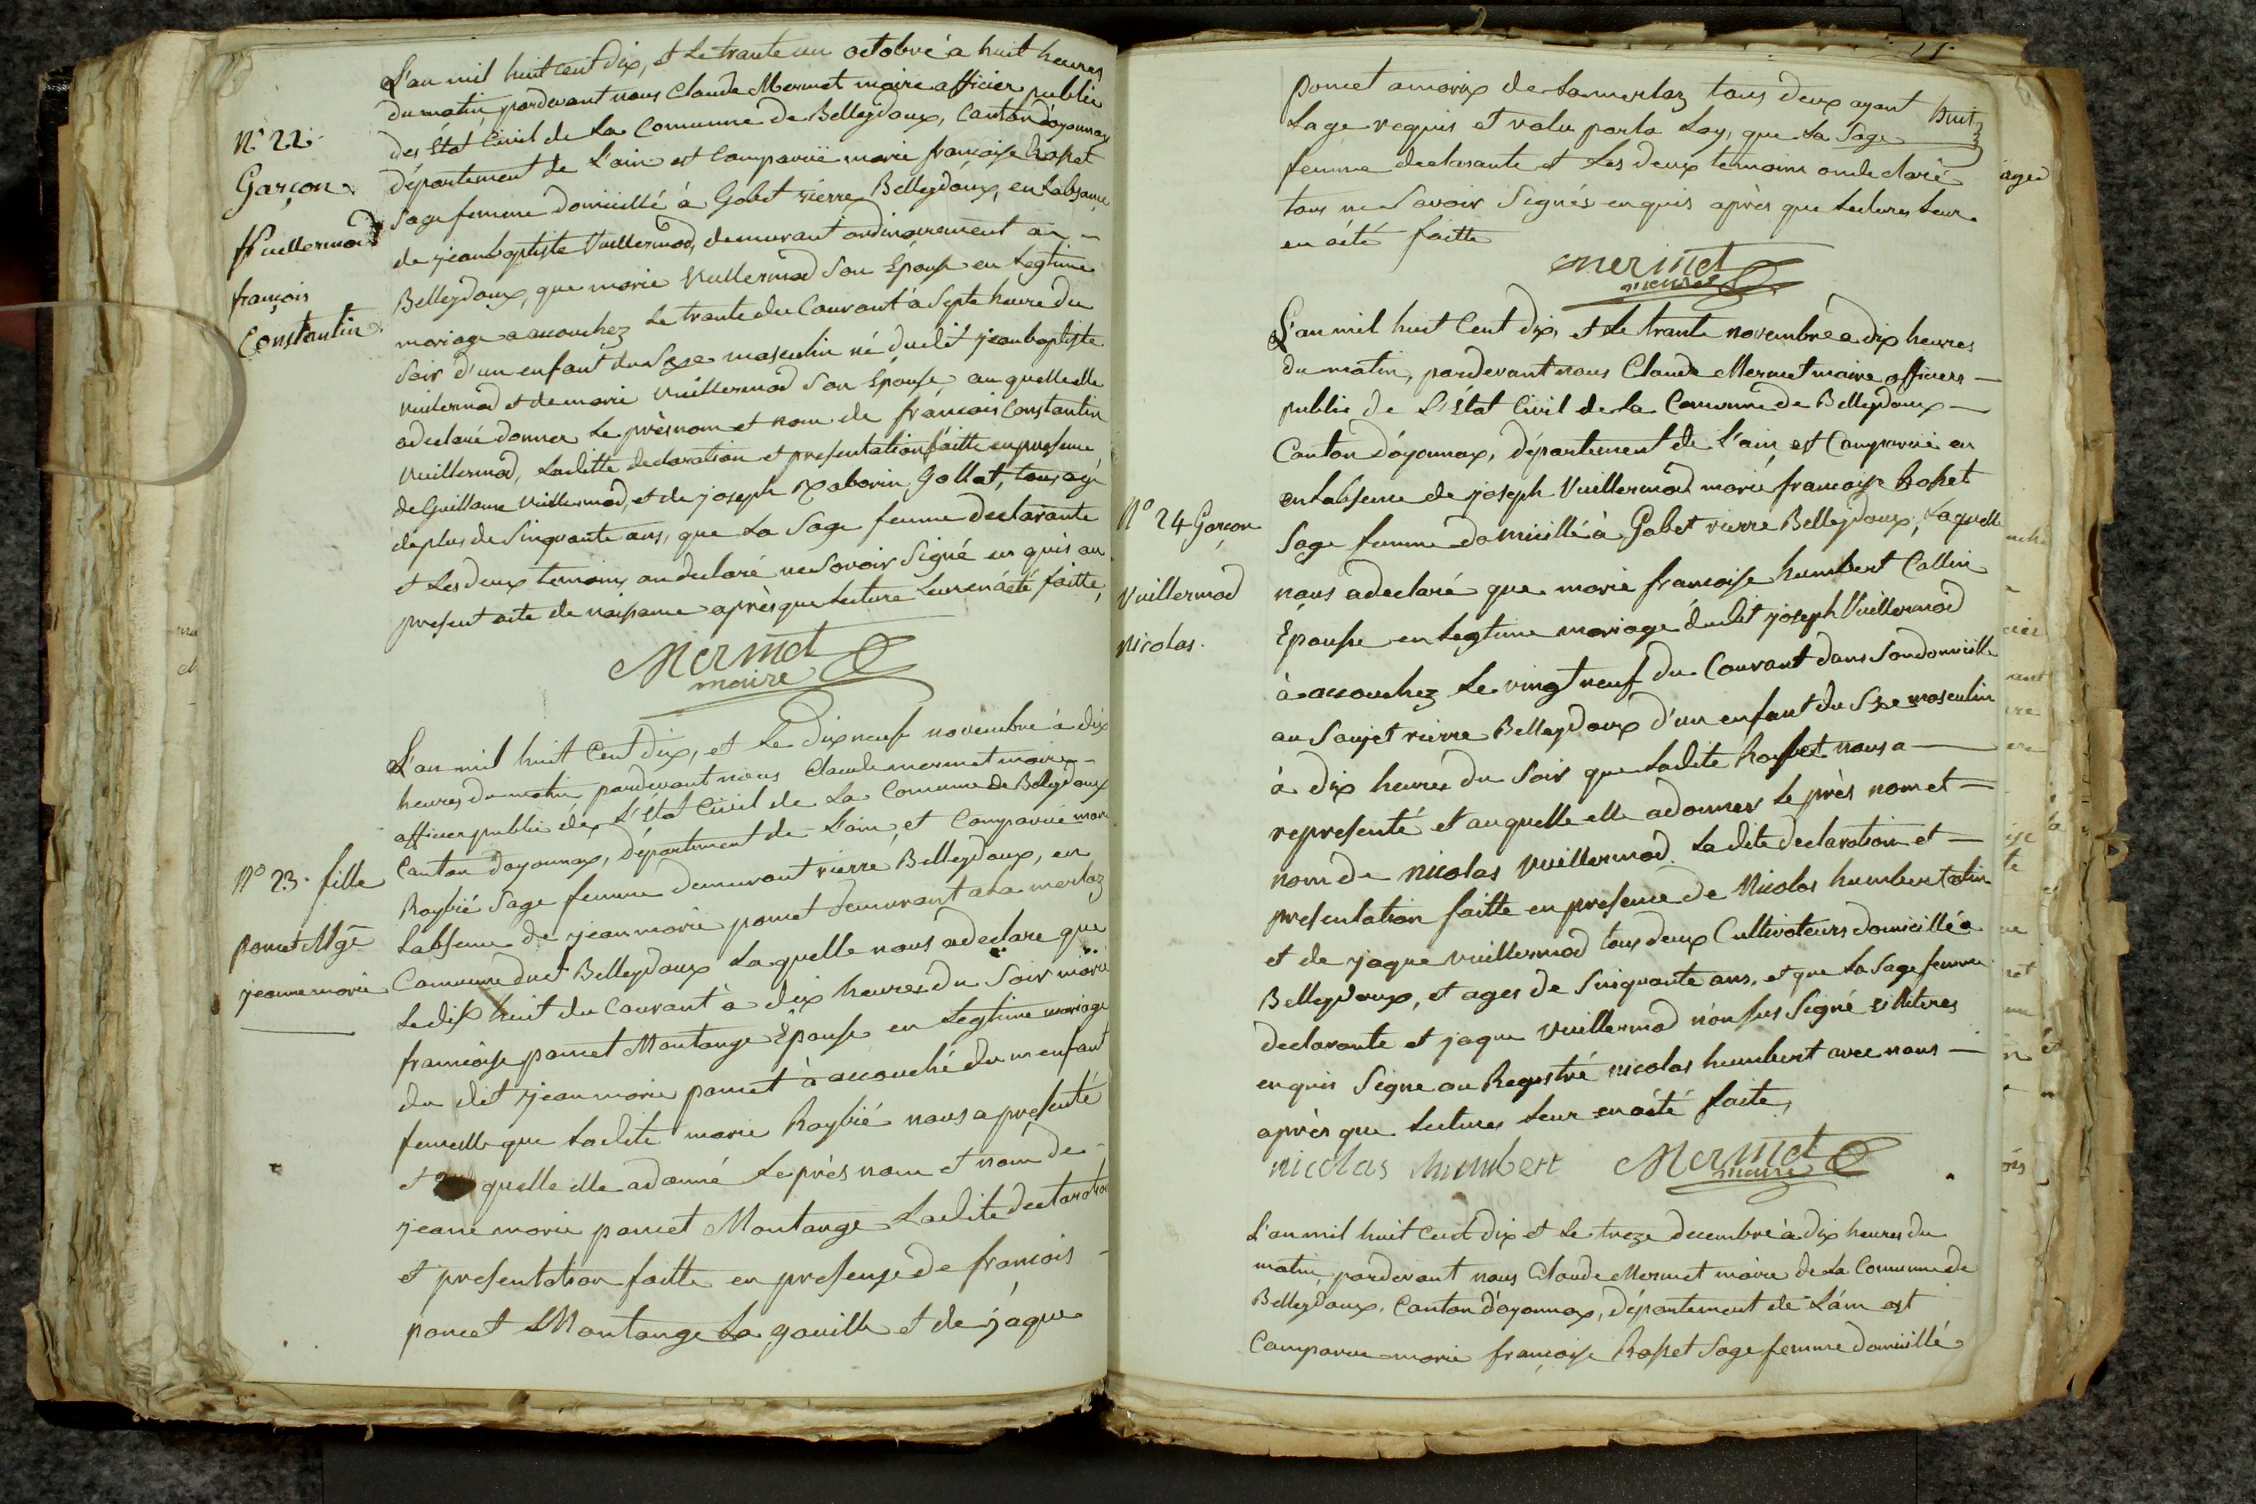 L'an mil huit cent dix, et le trante un octobre à huit heures
du matin pardevant nous Claude Mermet maire officier public
des État Civil de la Commune de Belleydoux, Canton d'oyonnax
département de L'ain est comparüe marie françoise Rosset
Sage femme domicillé à Gobet rierre Belleydoux, en Labsance
de jean baptiste Vuillermod, demurant ordinairement au
Belleydoux, que marie Vuillermod son Épouse en Legtime
mariage a accouchez Le trante du Courant à Septe heure du
Soir d'un enfant du Sexe masculin né dudit jean baptiste
Vuillermod et de marie Vuillermod Son Épouse, au quelle elle
a declaré donner Le près nom et nom de françois Constantin
Vuillermod, Laditte declaration et presentation faitte en presence
de Guillame Vuillermod, et de joseph Taborin Gollat, tous agé
de plus de Sinquante ans, que La Sage femme declarante
et Les deux temoins on declaré ne Savoir Signé en quis au
present acte de naissance après que Lecture Leur en áété faitte,
Mermet
maire
N° 22
Garçon
Vuillermod
françois
Constantin
L'an mil huit Cent dix, et Le dix neuf novembre à dix
heures du matin pardevant nous Claude mermet maire
officier public de L'État Civil de La Commune de Beleydoux
Canton doyonnax, département de L'ain, et Comparüe marie
Roybié Sage femme demurant rierre Belleydoux, en
Labsence de jean marie poncet demurant a La merlaz
Commune dud Belleydoux Laquelle nous a declare que
Le dix huit du Courant à dix heures du Soir marie
françoise poncet Montange Épouse en Legtime mariage
du dit jean marie poncet à accouché du n enfant
femelle que Ladite marie Roybié nous a presenté
et quelle elle a donné Le près nom et nom de
jeane marie poncet Montange Ladite declaration
et presentation faitte en presense de françois
poncet Montange La gouille et de jaque
N° 23 fille
poncet Mge
jeanne marie
poncet amarix de La merlaz tous deux ayant huit
Lage requis et valu par la Loy, que La Sage
femme declarante et Les deux temoins on declaré
tous ne Savoir Signés enquis après que Lectures Leur
en aété faitte
mermet
maire
L'an mil huit Cent dix, et Le trante novembre a dix heures
du matin, pardevant nous Claude Mermet maire officiers
public de L'État Civil de La Commune de Belleydoux
Canton d'oyonnax, département de L'ain, est Comparüe en
en Labsence de joseph Vuillermod marie françoise Rosset
Sage femme domicillé à Gobet rierre Belleydoux, Laquelle
nous a declaré que marie françoise humbert Collin
Épouse en Legtime mariage dudit joseph Vuillermod
à accouchez Le vingt neuf du Courant dans Son domicille
au Saujet rierre Belleydoux d'un enfant du Sexe masculin
à dix heures du Soir que Ladite Rosset nous a
representé et auquelle elle a donner Le près nom et
nom de nicolas Vuillermod. Ladite declaration et
presentation faitte en presence de Nicolas humbert Colin
et de jaque vuillermod tous deux Cultivateurs domicillé a
Belleydoux, et ages de Sinquante ans, et que La Sage femme
declarante et jaque Vuillermod n'on sus Signé si litéres
enquis Signe au Registré nicolas humbert avec nous
après que Lectures Leur en áété faite,
nicolas humbert Mermet
maire
N° 24 Garçon
Vuillermod
Nicolas
L'an mil huit Cent dix et Le treze decembre à dix heures du
matin pardevant nous Claude Mermet maire de La Commune de
Belleydoux, Canton d'oyonnax, département de L'ain est
Comparue marie françoise Rosset Sage femme domicillé